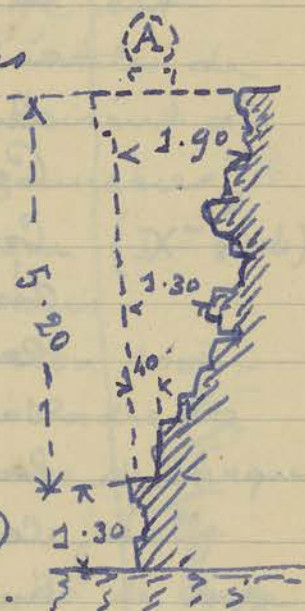 A
1.90
1.30
5.20
40
1.30